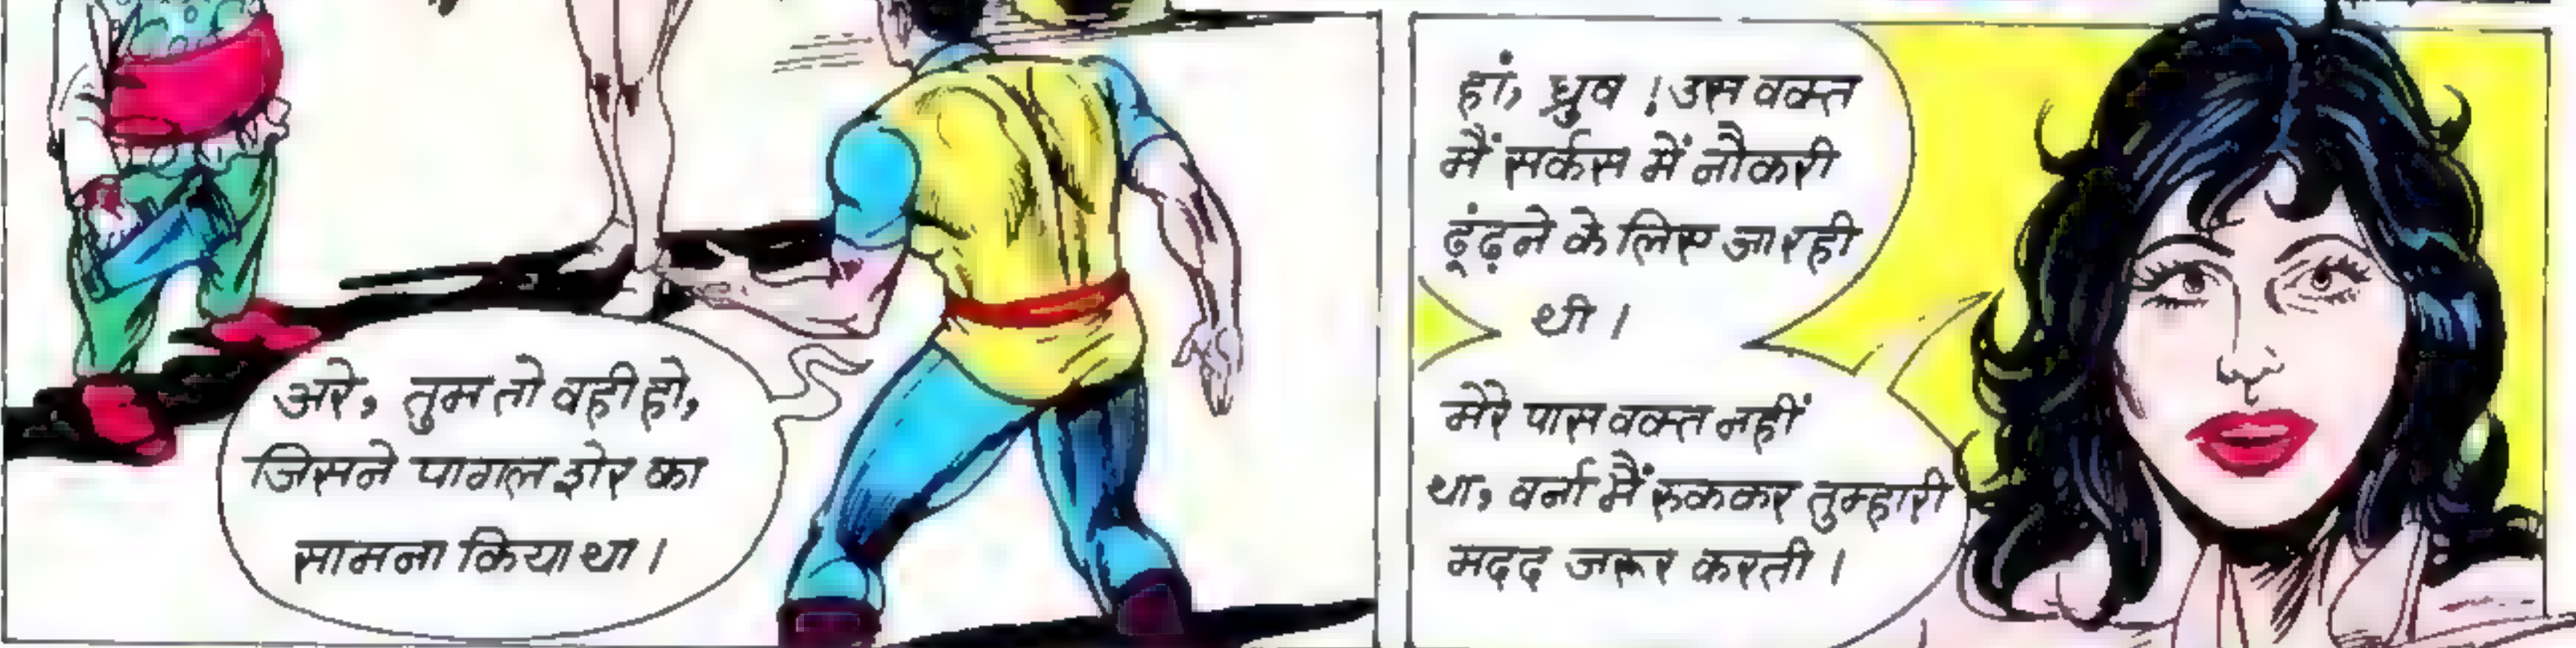 अरे, तुम तो वही हो,
जिसने पागल शेर का
सामना किया था।
हां, ध्रुव ! उस वक्त
मैं सर्कस में नौकरी
ढूंढ़ने के लिए आ रही
थी।
मेरे पास वक्त नहीं
था, वर्ना मैं रुककर तुम्हारी
मदद जरूर करती।